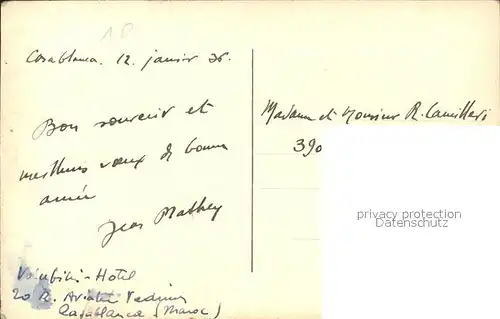 Casablanca. 12. janvier 36.
Bon souvenir et
meilleurs voeux de bonne
année
Jean Mathey
Madame et Monsieur R. Camilleri
390
privacy protection
www.ansichtskartenversand.com
-Hotel
20 R. Aviateur
Casablanca (Maroc)